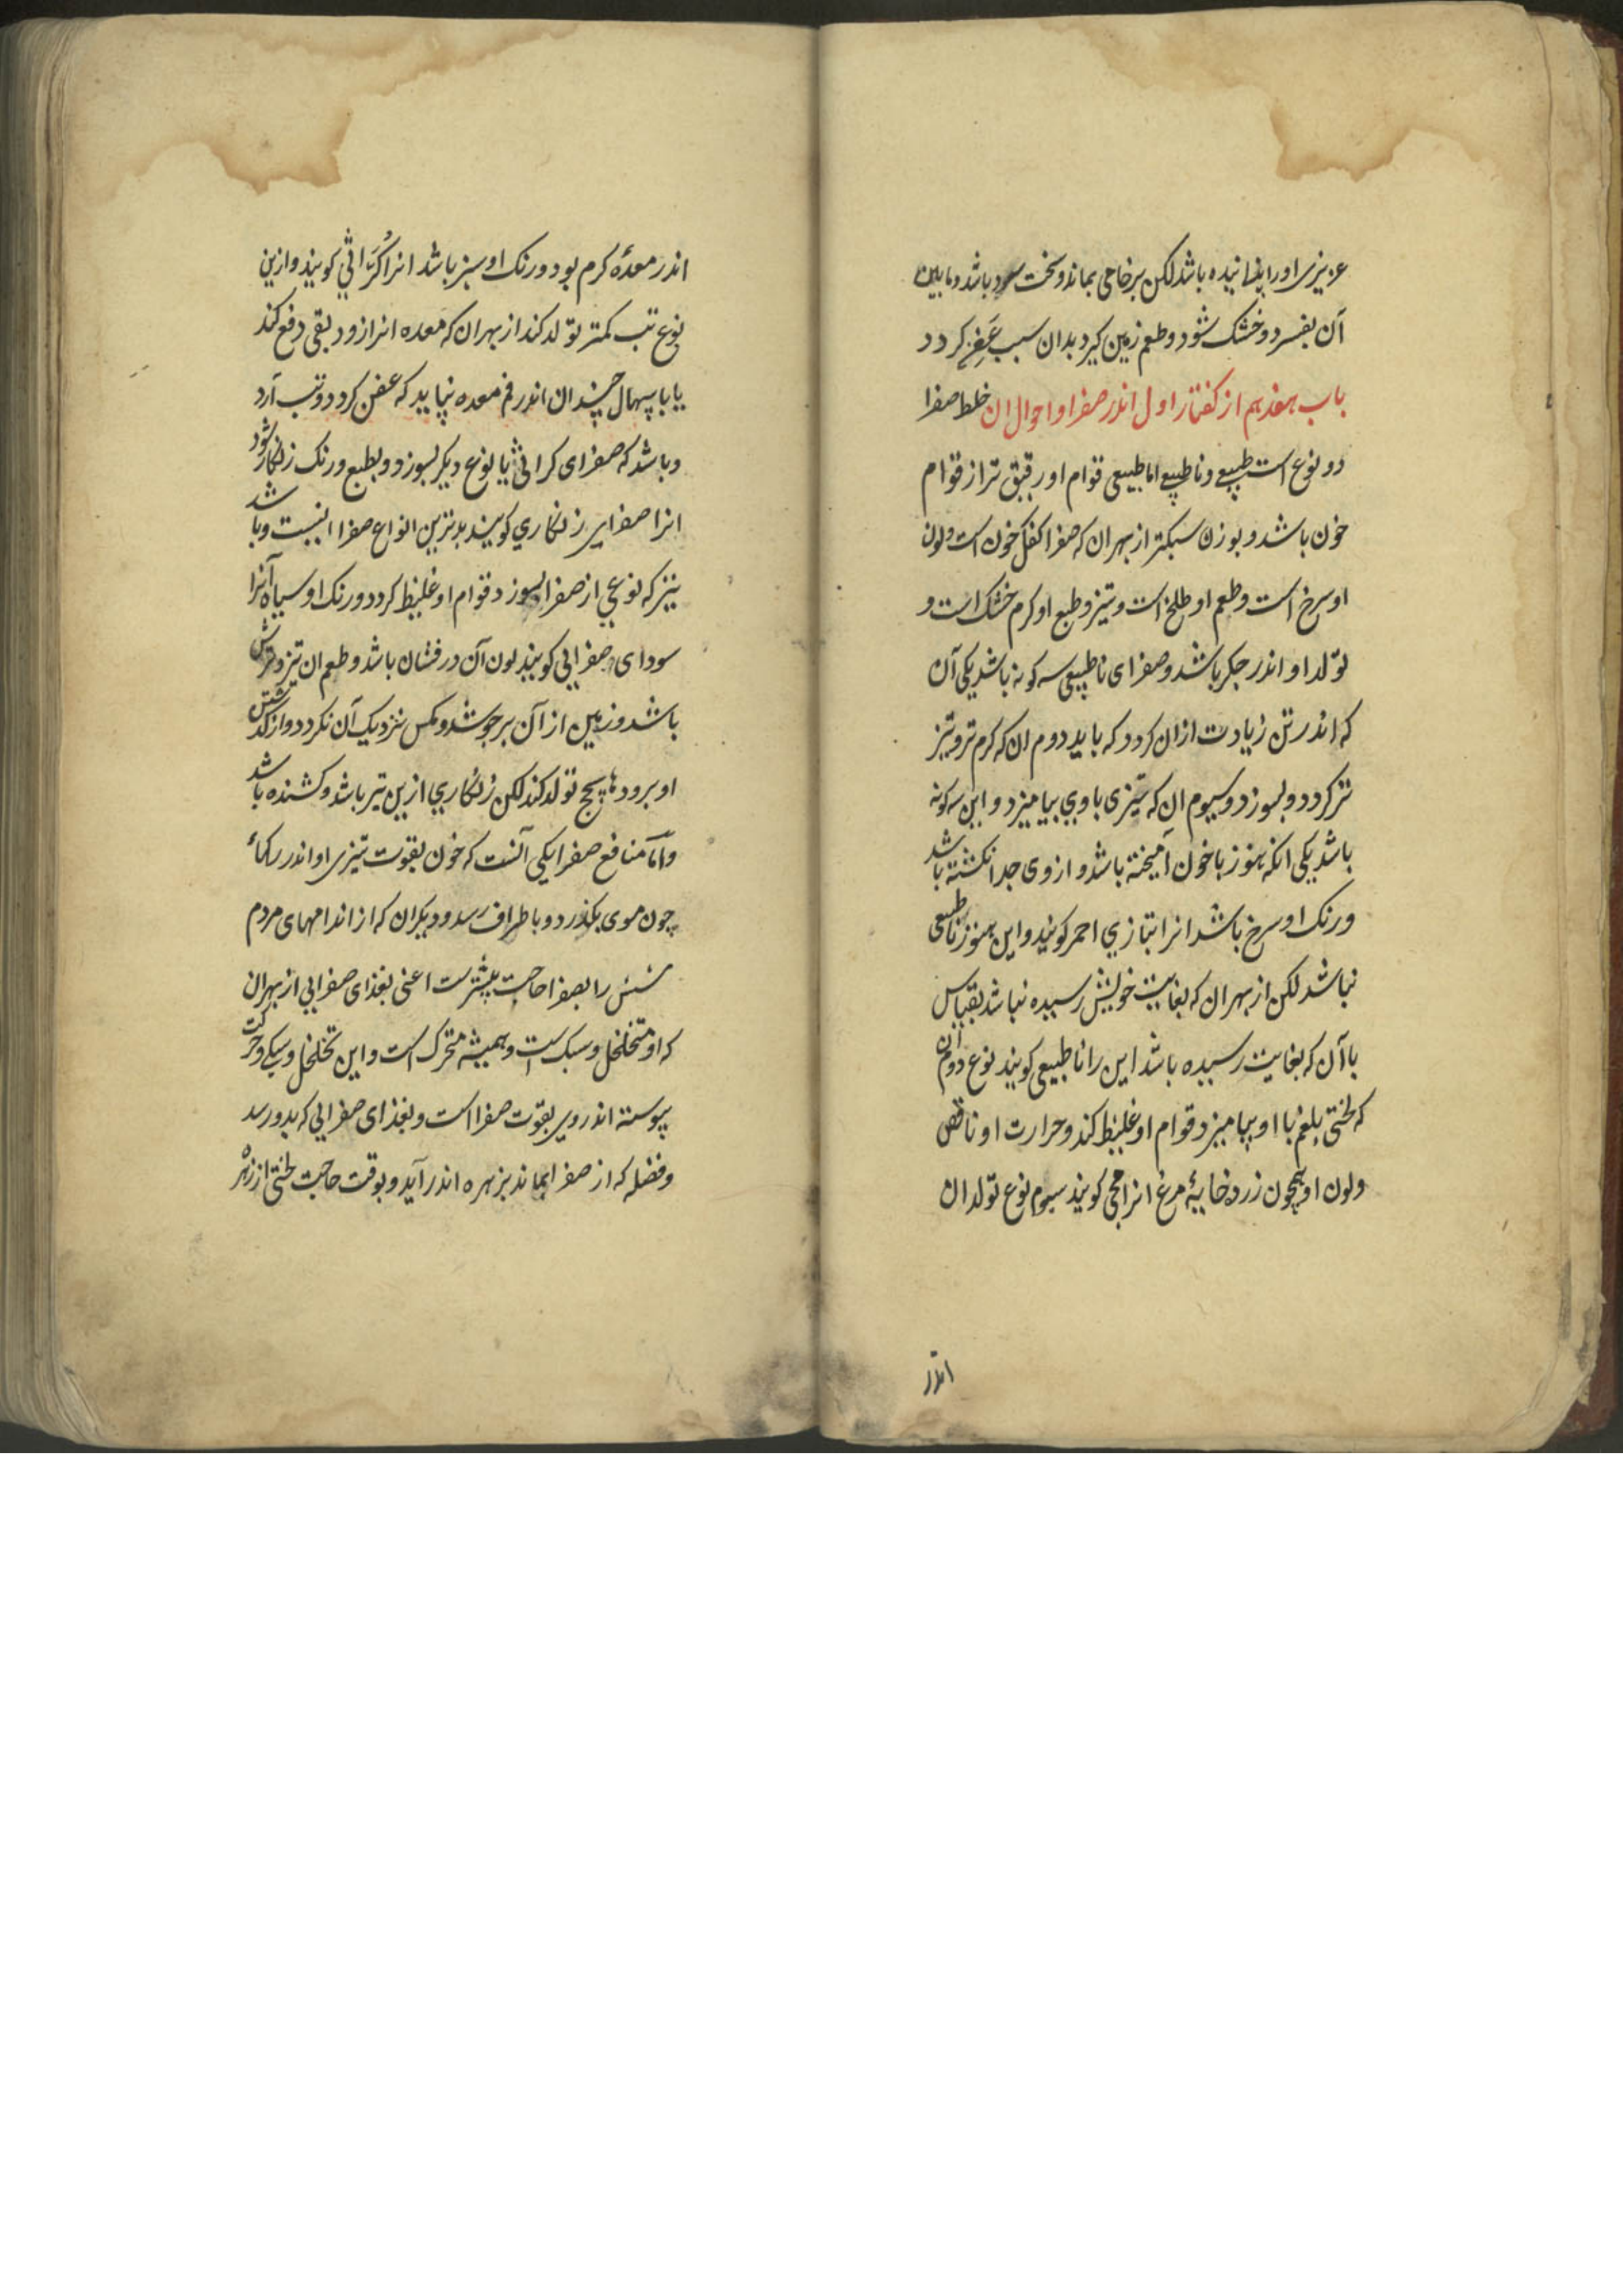 عزیزی اورا پزانیده باشد لکن بر خامی بماند و سخت سرد باشد و مابین
آن بفسرد و خشک شود و طعم زمین کیرد بدان سبب عفِص کردد
باب هفدهم از کفتار اول اندر صفرا و احوال ان خلط صفرا
دو نوع است طبیعی و ناطبیعی اما طبیعی قوام او رقیق تر از قوام
خون باشد و بوزن سبکتر از بهر ان که صفرا کفک خون است و لون
او سرخ است و طعم او طلخ است و تیز و طبع او کرم خشک است و
تولد او اندر جکر باشد و صفرای ناطبیعی سه کونه باشد یکی آن
که اندر تن زیادت ازان کردد که باید دوم ان که کرم تر و تیز
تر کردد و بسوزد و سیوم ان که چیزی با وی بیامیزد و این سه کونه
باشد یکی انکه هنوز با خون آمیخته باشد و از وی جدا نکشته باشد
و رنک او سرخ باشد انرا بتازی احمر کویند و این هنوز ناطبیعی
نباشد لکن از بهر ان که بغایت خویش رسیده نباشد بقیاس
با آن که بغایت رسیده باشد این را ناطبیعی کویند نوع دوم آن
که لختی بلغم با او بیامیزد قوام او غلیظ کند و حرارت او ناقص
و لون او همچون زرده خایهٔ مرغ انرا محی کویند سیوم نوع تولد ان
اندر
اندر معدهٔ کرم بود و رنک او سبز باشد انرا کُرّاثی کویند و ازین
نوع تب کمتر تولد کند از بهر ان که معده انرا زود بقی دفع کند
یا باسهال چندان اندر فم معده نپاید که عفن کردد و تب آرد
و باشد که صفرای کراثی یا نوع دیکر بسوزد و بطبع و رنک زنکار شود
انرا صفرای زنکاری کویند بدترین انواع صفرا اینست و باشد
نیز که نوعی از صفرا بسوزد قوام او غلیظ کردد و رنک او سیاه آنرا
سودای صفرایی کویند لون آن درفشان باشد و طعم ان تیز و ترش
باشد و زمین از آن برجوشد و مکس نزدیک آن نکردد و از کذشتن
او برودها سحج تولد کند لکن زنکاری ازین تیزتر باشد و کشنده باشد
و امّا منافع صفرا یکی آنست که خون بقوت تیزی او اندر رکهاء
چون موی بکذرد و باطراف رسد و دیکر ان که از اندامهای مردم
شش را بصفرا حاجت بیشترست اعنی بغذای صفرایی از بهر ان
که او متخلخل و سبک است و همیشه متحرک است و این تخلخل و سبکی و حرکت
پیوسته اندر وی بقوّت صفرا است و بغذای صفرایی که بدو رسد
و فضله که از صفرا بماند بزهره اندر آید و بوقت حاجت لختی از زهره